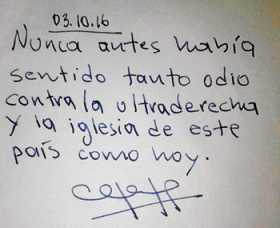 03.10.16
Nunca antes había
sentido tanto odio
contra la ultraderecha
y la iglesia de este
país como hoy.